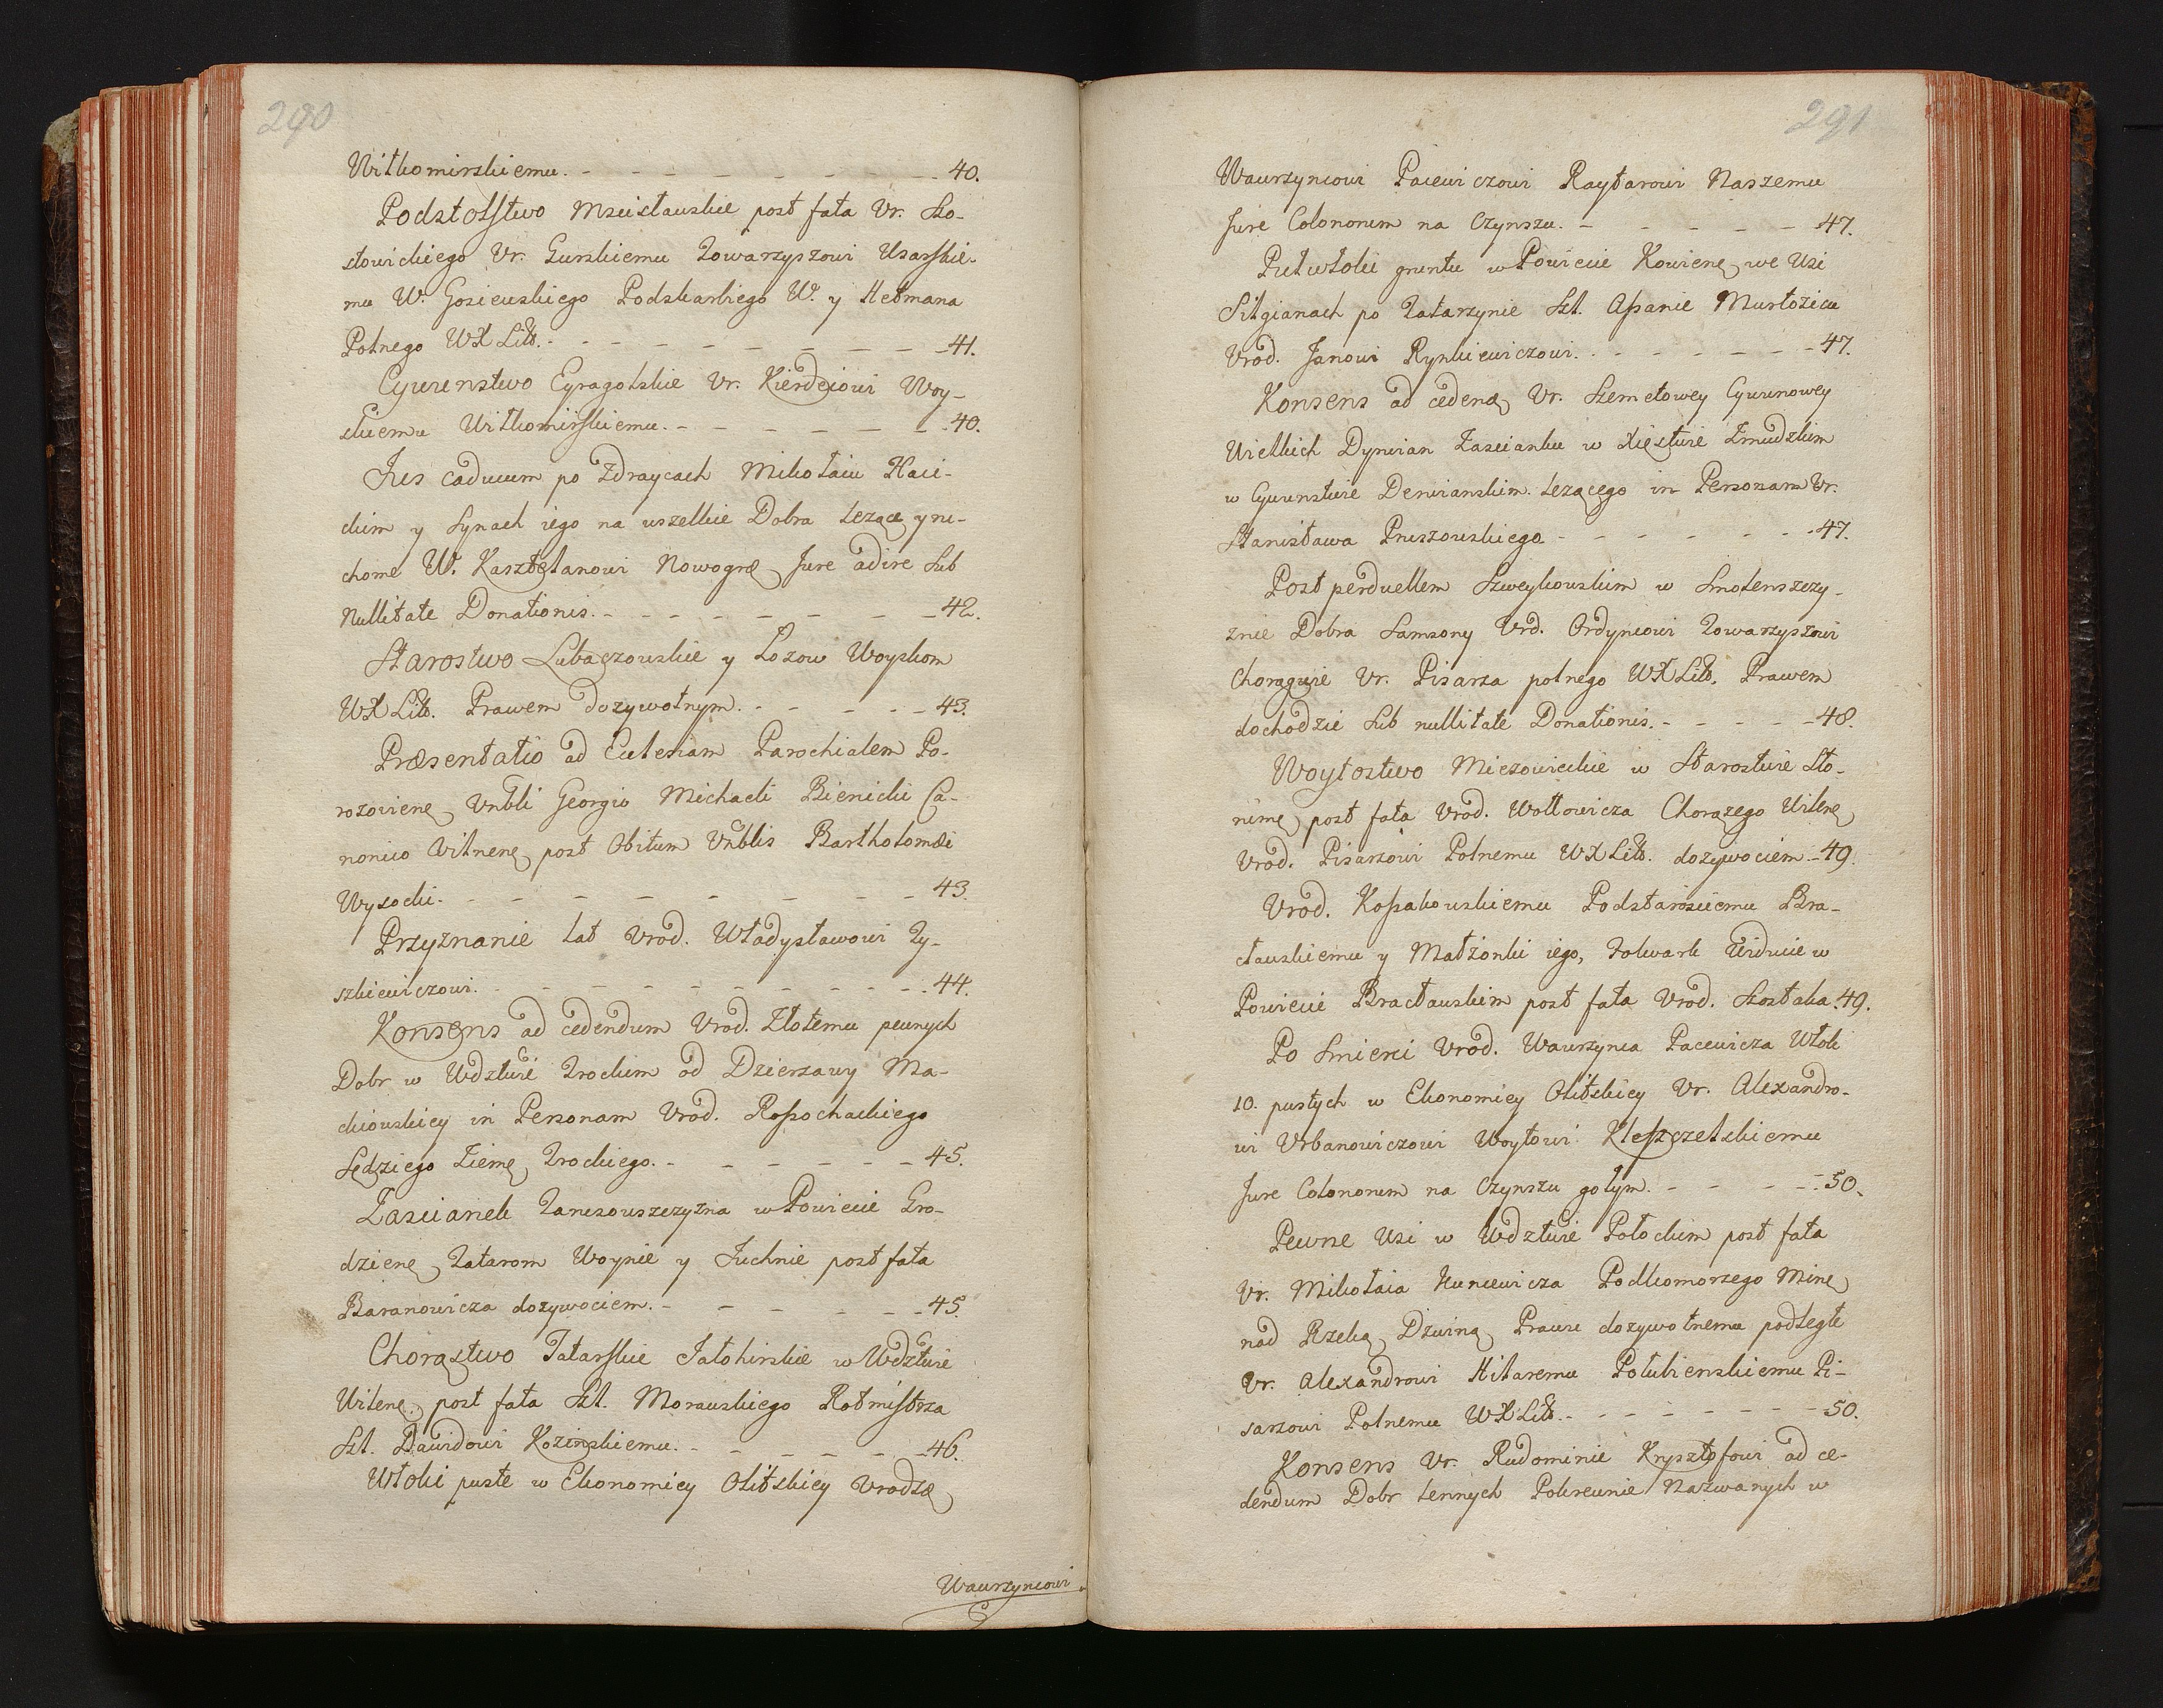 290
Wiłkomirskiemu. - - - - - - - - 40.
Podstolstwo Mscisławskie post fata Vr. Szo-
stowickiego Vr. Gurskiemu Towarzyszowi Usarskie-
mu W. Gosiewskiego Podskarbiego W. y Hetmana
Polnego WXLitt. - - - - - - - - - 41.
Cywunstwo Eyragolskie Vr. Kierdeiowi Woy-
skiemu Wiłkomirskiemu. - - - - - - - 40.
Jus caducum po Zdraycach Mikołaiu Haci-
skim y Synach iego na wszelkie Dobra leząca y ru-
chome W. Kasztelanowi Nowogrę Jure adire sub
Nullitate Donationis. - - - - - - - - 42.
Starostwo Lubaczowskie y Łozow Woyskom
WXLitt. Prawem dozywotnym. - - - - - 43.
Præsentatio ad Ecclesiam Parochialem Po-
rozowienę Vnbli Georgio Michaeli Bienicki Ca-
nonico Vilnenę post Obitum Vnblis Bartholomæi
Wysocki. - - - - - - - - - 43.
Przyznanie lat Vrod. Władysławowi Ty-
szkiewiczowi. - - - - - - - - - - 44.
Konsens ad cedendum Vrod. Złotemu pewnych
Dobr w Wdztwie Trockim od Dzierzawy Ma-
ckowskiey in Personam Vrod. Rossochackiego
Sędziego Ziemę Trockiego. - - - - - - 45.
Zascianek Tanczowszczyzna w Powiecie Gro-
dzienę Tatarom Woynie y Juchnie post fata
Baranowicza dozywociem. - - - - - - 45.
Chorąstwo Tatarskie Jałohirskie w Wdztwie
Wilenę. post fata Szl. Morawskiego Rotmistrza
Szl. Dawidowi Kozinskiemu. - - - - - - 46.
Włoki puste w Ekonomiey Olitskiey Vrodzę
Wawrzyncowi
291
Wawrzyncowi Pacewiczowi Raytarowi Naszemu
Jure Colonorum na Czynszu. - - - - - 47.
Puławłoki gruntu w Powiecie Kowienę we Wsi
Sitgianach po Tatarzynie Szl. Assanie Murtozicu
Vrod. Janowi Rynkiewiczowi. - - - - - - 47.
Konsens ad cedenę Vr. Szemetowey Cywunowey
Wielkich Dyrwian Zascianku w Xięstwie Zmudzkim
w Cywunstwie Derwianskim lezącego in Personam Vr.
Stanisława Pruszowskiego - - - - - - 47.
Post perduellem Szweykowskim w Smolenszczy-
znie Dobra Samsony Vrd. Ordyncowi Towarzyszowi
Chorągwie Vr. Pisarza polnego WXLitt. Prawem
dochodzic sub nullitate Donationis. - - - - - 48.
Woytostwo Miczowickie w Starostwie Sło-
nimę post fata Vrod. Wołłowicza Chorązego Wilenę
Vrod. Pisarzowi Polnemu WXLitt. dozywociem. - 49.
Vrod. Kossakowskiemu Podstarosciemu Bra-
cławskiemu y Małżonki iego, Folwark Widucie w
Powiecie Bracławskim post fata Vrod. Szostaka. 49.
Po Smierci Vrod. Wawrzynca Pacewicza Włok
10. pustych w Ekonomiey Olitskiey Vr. Alexandro-
wi Vrbanowiczowi Woytowi Kleszczelskiemu
Jure Colonorum na Czynszu gołym. - - - - - 50.
Pewne Wsi w Wdztwie Połockim post fata
Vr. Mikołaia Huncewicza Podkomorzego Minę
nad Rzeką Dzwiną Prawu dozywotnemu podległe
Vr. Alexandrowi Hilaremu Połubienskiemu Pi-
sarzowi Polnemu WXLitt. - - - - - - - 50.
Konsens Vr. Rudominie Krysztofowi ad ce-
dendum Dobr lennych Pokrewnie Nazwanych w